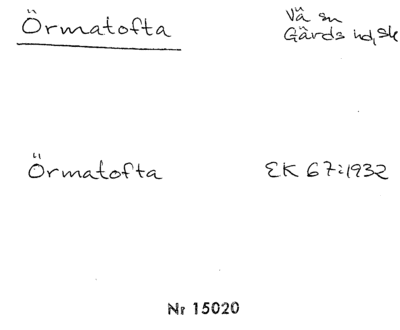 Örmatofta
Vä sn
Gärds hd, Sk
Örmatofta
EK 67:1932
Nr 15020